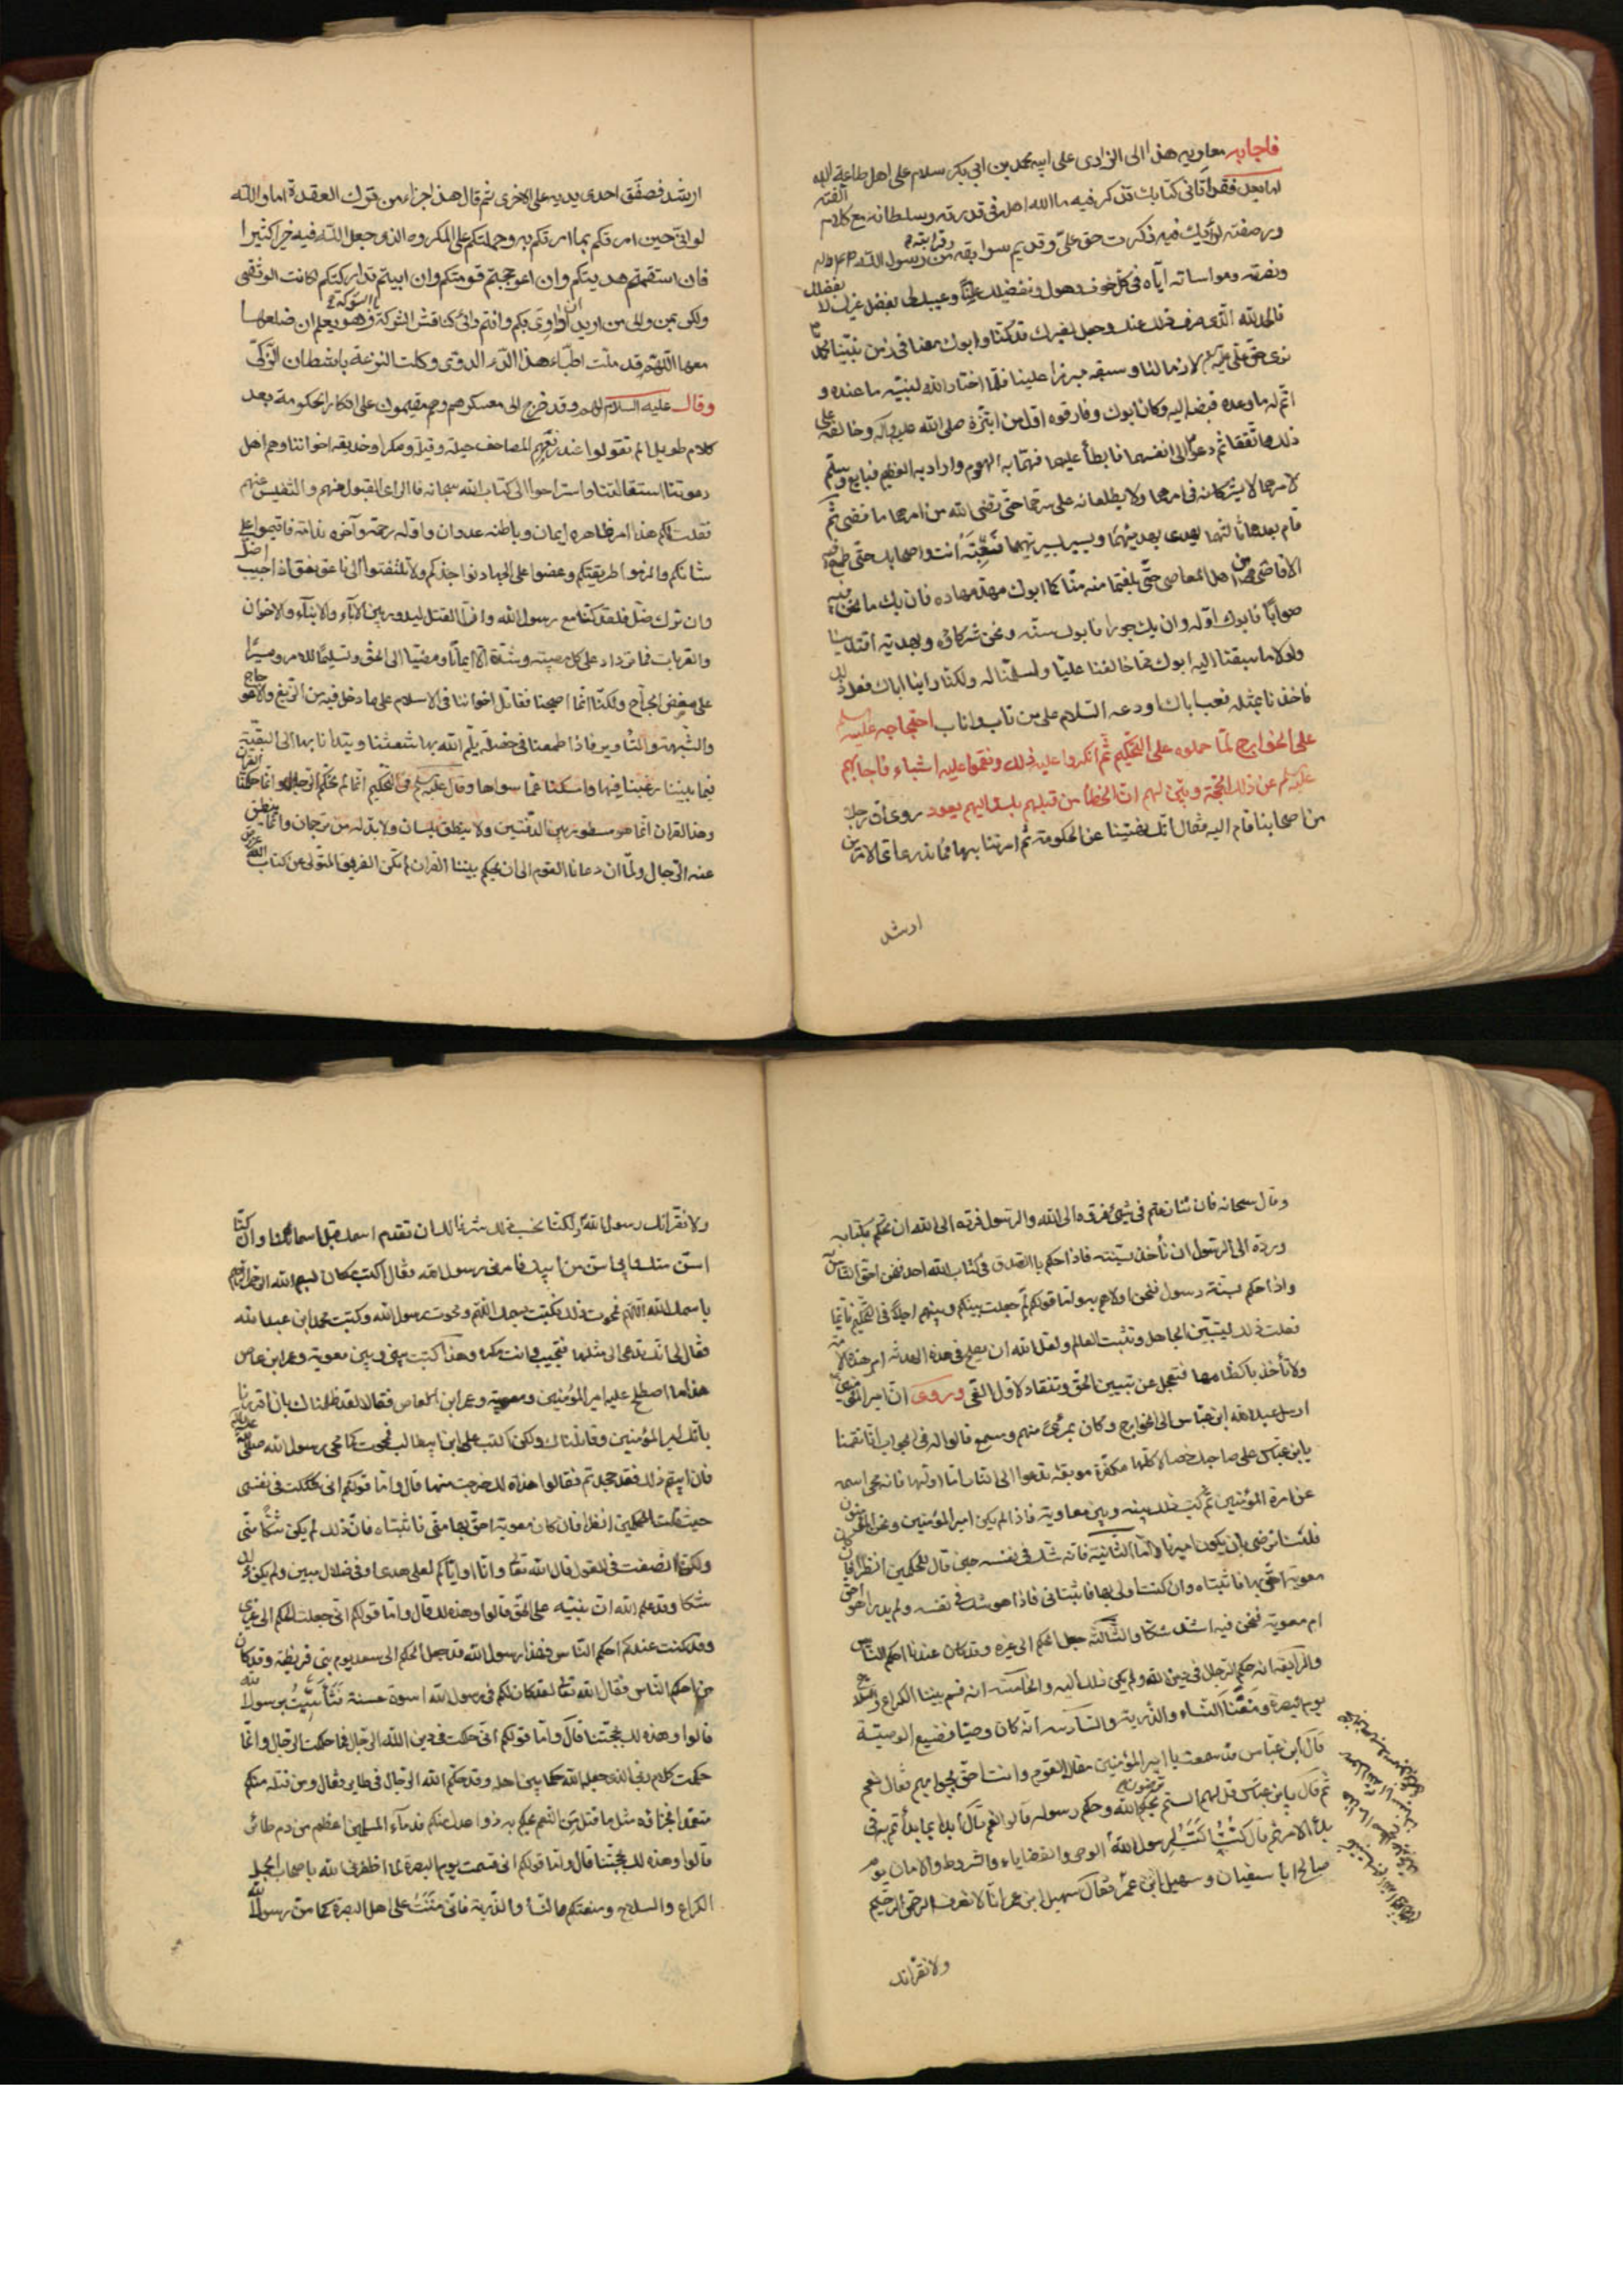 فاجابه معاوية هذا الى الزارى على ابيه محمد بن ابى بكر سلام على اهل طاعة الله
اما بعد فقد اتانى كتابك تذكر فيه ما الله اهله فى قدرته وسلطانه مع كلام الفته
ورصفته لرأيك فيه ذكرت حق على وقديم سوابقه وقرابته من رسول الله
ونصرته ومواساته اياه فى كل خوف وهول وتفضيلك عليا وعيبك لى بفضل غيرك لا بفضلك
فالحمد لله الذى صرف ذلك عنك وجعل لغيرك قد كنا وابوك معنا فى زمن نبينا
نرى حق على لازما لنا وسبقه مبرزا علينا فلما اختار الله لنبيه ما عنده و
اتم له ما وعده قبضه اليه وكان ابوك وفاروقه اول من ابتزه وخالفه على
ذلك اتفقا ثم دعواه الى انفسهما فابطأ عليهما فهما به الهموم وارادا به العظيم فبايع وسلم
لامرهما لا يشركانه فى امرهما ولا يطلعانه على سرهما حتى قضى الله من امرهما ما قضى ثم
قام بعدهما ثالثهما يهدى بهديهما ويسير بسيرتهما فعبته انت واصحابك حتى طمع فيه
الاقاصى من اهل المعاصى حتى بلغتما منه مناكما ابوك مهد مهاده فان يك ما نحن فيه
صوابا فابوك اوله وان يك جورا فابوك سنه ونحن شركاؤه وبهديه اقتدينا
ولولا ما سبقنا اليه ابوك ما خالفنا عليا ولسلمنا له ولكنا راينا اباك فعل ذلك
فاخذنا بمثله فعب اباك او دعه والسلام على من تاب واناب احتجاجه عليه
على الخوارج لما حملوه على التحكيم ثم انكروا عليه ذلك ونقموا عليه اشياء فاجابهم
عن ذلك بالحجة وبين لهم ان الخطأ من قبلهم بل واليهم يعود روى ان رجلا
من اصحابنا قام اليه فقال انك نهيتنا عن الحكومة ثم امرتنا بها فما ندرى اى الامرين
ارشد
ارشد فصفق احدى يديه على الاخرى ثم قال هذا جزاء من ترك العقدة اما والله
لو انى حين امرتكم بما امرتكم به وحملتكم على المكروه الذى جعل الله فيه خيرا كثيرا
فان استقمتم هديتكم وان اعوججتم قومتكم وان ابيتم تداركتكم لكانت الوثقى
ولكن بمن والى من اريد ان اداوى بكم وانتم دائى كناقش الشوكة بالشوكة وهو يعلم ان ضلعها
معها اللهم قد ملت اطباء هذا الداء الدوى وكلت النزعة باشطان الركى
وقال عليه السلام لهم وقد خرج الى معسكرهم وهم مقيمون على انكار الحكومة بعد
كلام طويل الم تقولوا عند رفعهم المصاحف حيلة وغيلة ومكرا وخديعة اخواننا وهم اهل
دعوتنا استقالونا واستراحوا الى كتاب الله سبحانه فالراى القبول منهم والتنفيس عنهم
فقلت لكم هذا امر ظاهره ايمان وباطنه عدوان واوله رحمة وآخره ندامة فاقيموا على
شانكم والزموا طريقتكم وعضوا على الجهاد نواجذكم ولا تلتفتوا الى ناعق نعق ان اجيب اضل
وان ترك ضل فلقد كنا مع رسول الله وان القتل ليدور بين الآباء والابناء والاخوان
والقرابات فما نزداد على كل مصيبة وشدة الا ايمانا ومضيا الى الحق وتسليما للامر وصبرا
على مضض الجراح ولكنا انما اصبحنا نقاتل اخواننا فى الاسلام على ما دخل فيه من الزيغ والاعوجاج
والشبهة والتأويل فاذا طمعنا فى خصلة يلم الله بها شعثنا ويتدانا بها الى البقية
فيما بيننا رغبنا فيها وامسكنا عما سواها وقال فى التحكيم انا لم نحكم الرجال وانما حكمنا القران
وهذا القران انما هو مسطور بين الدفتين ولا ينطق بلسان ولا بد له من ترجمان وانما ينطق
عنه الرجال ولما ان دعانا القوم الى ان نحكم بيننا القران لم نكن الفريق المتولى عن كتاب الله
وقال سبحانه فان تنازعتم فى شئ فردوه الى الله والرسول فرده الى الله ان نحكم بكتابه
ورده الى الرسول ان نأخذ بسنته فاذا حكم بالصدق فى كتاب الله فنحن احق الناس
واذا حكم بسنة رسول فنحن اولاهم به واما قولكم لم جعلت بينكم وبينهم اجلا فى التحكيم فانما
فعلت ذلك ليتبين الجاهل وتثبت العالم ولعل الله ان يصلح فى هذه الهدنة امر هذه الامة
ولا تأخذ باكظامها فتعجل عن تبيين الحق وتنقاد لاول الغى وروى ان امير المؤمنين
ارسل عبد الله ابن عباس الى الخوارج وكان بمرأى منهم ومسمع قالوا له فى الجواب انا نقمنا
يا ابن عباس على صاحبك خصالا كلها مكفرة موبقة تدعوا الى النار اما اولها فانه محى اسمه
عن امرة المؤمنين ثم كتب ذلك بينه وبين معاوية فاذا لم يكن امير المؤمنين ونحن المؤمنون
فلسنا نرضى بان يكون اميرنا واما الثانية فانه شك فى نفسه حين قال للحكمين انظرا فان كان
معوية احق بها فاثبتاه وان كنت اولى بها فاثبتانى فاذا هو شك فى نفسه ولم يدر اهو احق
ام معوية فنحن فيه اشد شكا والثالثة جعل الحكم الى غيره وقد كان عندنا احكم الناس
والرابعة انه حكم الرجال فى دين الله ولم يكن ذلك اليه والخامسة انه قسم بيننا الكراع والسلاح
يوم البصرة ومنعنا النساء والذرية والسادسة انه كان وصيا فضيع الوصية
قال ابن عباس قد سمعت يا امير المؤمنين مقال القوم وانت احق بجوابهم فقال نعم
ثم قال يا بن عباس قل لهم الستم ترضون بحكم الله وحكم رسوله قالوا نعم قال ابدا بما بدأتم به فى
بدأ الامر ثم قال كنت اكتب لرسول الله الوحى والقضايا والشروط والامان يوم
صالح ابا سفيان وسهيل ابن عمر فقال سهيل ابن عمر انا لا نعرف الرحمن الرحيم
ولا نقر انك
ولا نقر انك رسول الله ولكنا نحسب ذلك شرفا لك ان تقدم اسمك قبل اسمائنا وان كنا
اسن منك وابى اسن من ابيك فامرنى رسول الله فقال اكتب مكان بسم الله الرحمن الرحيم
باسمك اللهم فمحوت ذلك وكتبت باسمك اللهم ومحوت رسول الله وكتبت محمد ابن عبد الله
فقال لى انك تدعى الى مثلها فتجيب وانت مكره وهذا كتبت بينى وبين معوية وعمر ابن عاص
هذا ما اصطلح عليه امير المؤمنين ومعوية وعمر ابن العاص فقالا لقد ظلمناك بان اقررنا
بانك امير المؤمنين وقاتلناك ولكن اكتب على ابن ابيطالب فمحوت كما محى رسول الله
فان ابيتم ذلك فقد جحدتم فقالوا هذه لك خرجت منها قال واما قولكم انى شككت فى نفسى
حيث قلت للحكمين انظرا فان كان معوية احق بها منى فاثبتاه فان ذلك لم يكن شكا منى
ولكن انصفت فى القول قال الله تعالى وانا او اياكم لعلى هدى او فى ضلال مبين ولم يكن ذلك
شكا وقد علم الله ان نبيه على الحق قالوا وهذه لك قال واما قولكم انى جعلت الحكم الى غيرى
وقد كنت عندكم احكم الناس فهذا رسول الله قد جعل الحكم الى سعد يوم بنى قريظة وقد كان
من احكم الناس فقال الله تعالى لقد كان لكم فى رسول الله اسوة حسنة فتأسيت برسول الله
قالوا وهذه لك بحجتنا قال واما قولكم انى حكمت فى دين الله الرجال فما حكمت الرجال وانما
حكمت كلام ربى الذى جعله الله حكما بين اهله وقد حكم الله الرجال فى طاير فقال ومن قتله منكم
متعمدا فجزاؤه مثل ما قتل من النعم يحكم به ذوا عدل منكم فدماء المسلمين اعظم من دم طائر
قالوا وهذه لك بحجتنا قال واما قولكم انى قسمت يوم البصرة لما اظفرنى الله باصحاب الجمل
الكراع والسلاح ومنعتكم النسا والذرية فانى مننت على اهل البصرة كما من رسول الله